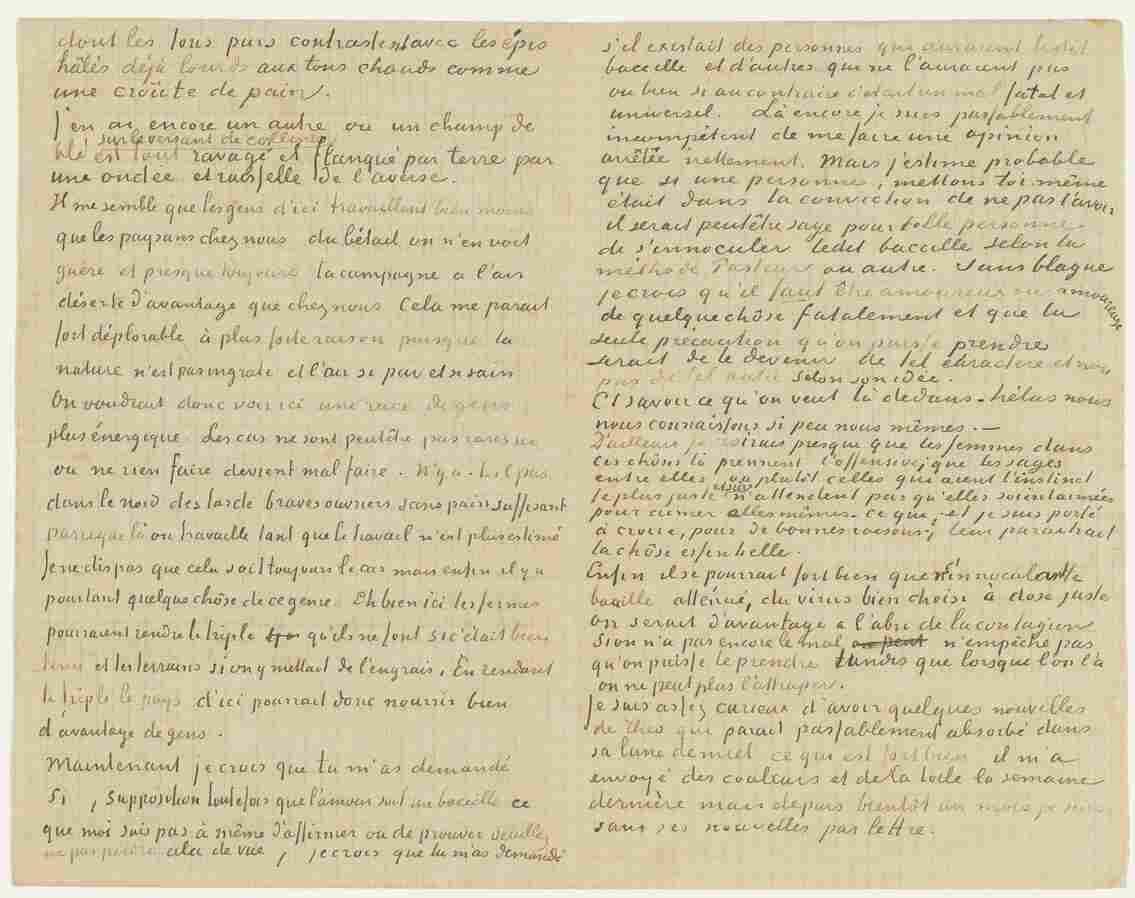 dont les tons purs contrastent avec les épis
hâlés déjà lourds aux tons chauds comme
une croûte de pain.
J'en ai encore un autre ou un champ de
sur le versant de collines
blé est tout ravagé et flanqué par terre par
une ondée et ruisselle de l'averse.
Il me semble que les gens d'ici travaillent bien moins
que les paysans chez nous du bétail on n'en voit
guère et presque toujours la campagne a l'air
déserte d'avantage que chez nous. Cela me parait
fort déplorable à plus forte raison puisque la
nature n'est pas ingrate et l'air si pur et si sain
On voudrait donc voir ici une race de gens
plus énergique. Les cas ne sont peutêtre pas rares ici
ou ne rien faire devient mal faire. N'y a-t-il pas
dans le nord des tas de braves ouvriers sans pain suffisant
parceque là on travaille tant que le travail n'est plus estimé
Je ne dis pas que cela soit toujours le cas mais enfin il y a
pourtant quelque chôse de ce genre. Eh bien ici les fermes
pourraient rendre le triple qu'ils ne font si c'était bien
tenu et les terrains si on y mettait de l'engrais. En rendant
le triple le pays d'ici pourrait donc nourrir bien
d'avantage de gens.
Maintenant je crois que tu m'as demandé
si, supposition toutefois que l'amour soit un baccille ce
que moi suis pas à même d'affirmer ou de prouver veuillez
ne pas perdre cela de vue, je crois que tu m'as demandé
s'il existait des personnes qui auraient ledit
baccille et d'autres que ne l'auraient pas
ou bien si au contraire c'etait un mal fatal et
universel. Là encore je suis passablement
incompétent de me faire une opinion
arrêtée nettement. Mais j'estime probable
que si une personne, mettons toi-même
était dans la conviction de ne pas l'avoir
il serait peutêtre sage pour telle personne
de s'innoculer ledit baccille selon la
méthode Pasteur ou autre. Sans blague
je crois qu'il faut être amoureux ou amoureuse
de quelque chôse fatalement et que la
seule précaution qu'on puisse prendre
serait de le devenir de tel caractère et non
pas de tel autre selon son idée.
Et savoir ce qu'on veut là dedans – hélas nous
nous connaissons si peu nous mêmes. —
D'ailleurs je croirais presque que les femmes dans
ces chôses là prennent l'offensive; que les sages
entre elles ou plutôt celles qui aient l'instinct
le plus juste n'attendent pas qu'elles soient aimées
pour aimer elles mêmes. ce que, et je suis porté
à croire, pour de bonnes raisons, leur paraitrait
la chôse essentielle.
Enfin il se pourrait fort bien que s'innoculant le
bacille atténué, du virus bien choisi à dose juste
on serait d'avantage a l'abri de la contagion
Si on n'a pas encore le mal on peut n'empêche pas
qu'on puisse le prendre tandis que lorsque l'on l'a
on ne peut plus l'attraper.
Je suis assez curieux d'avoir quelques nouvelles
de Theo qui parait passablement absorbé dans
sa lune de miel ce qui est fort bien il m'a
envoyé des couleurs et de la toile la semaine
dernière mais depuis bientôt un mois je suis
sans ses nouvelles par lettre.